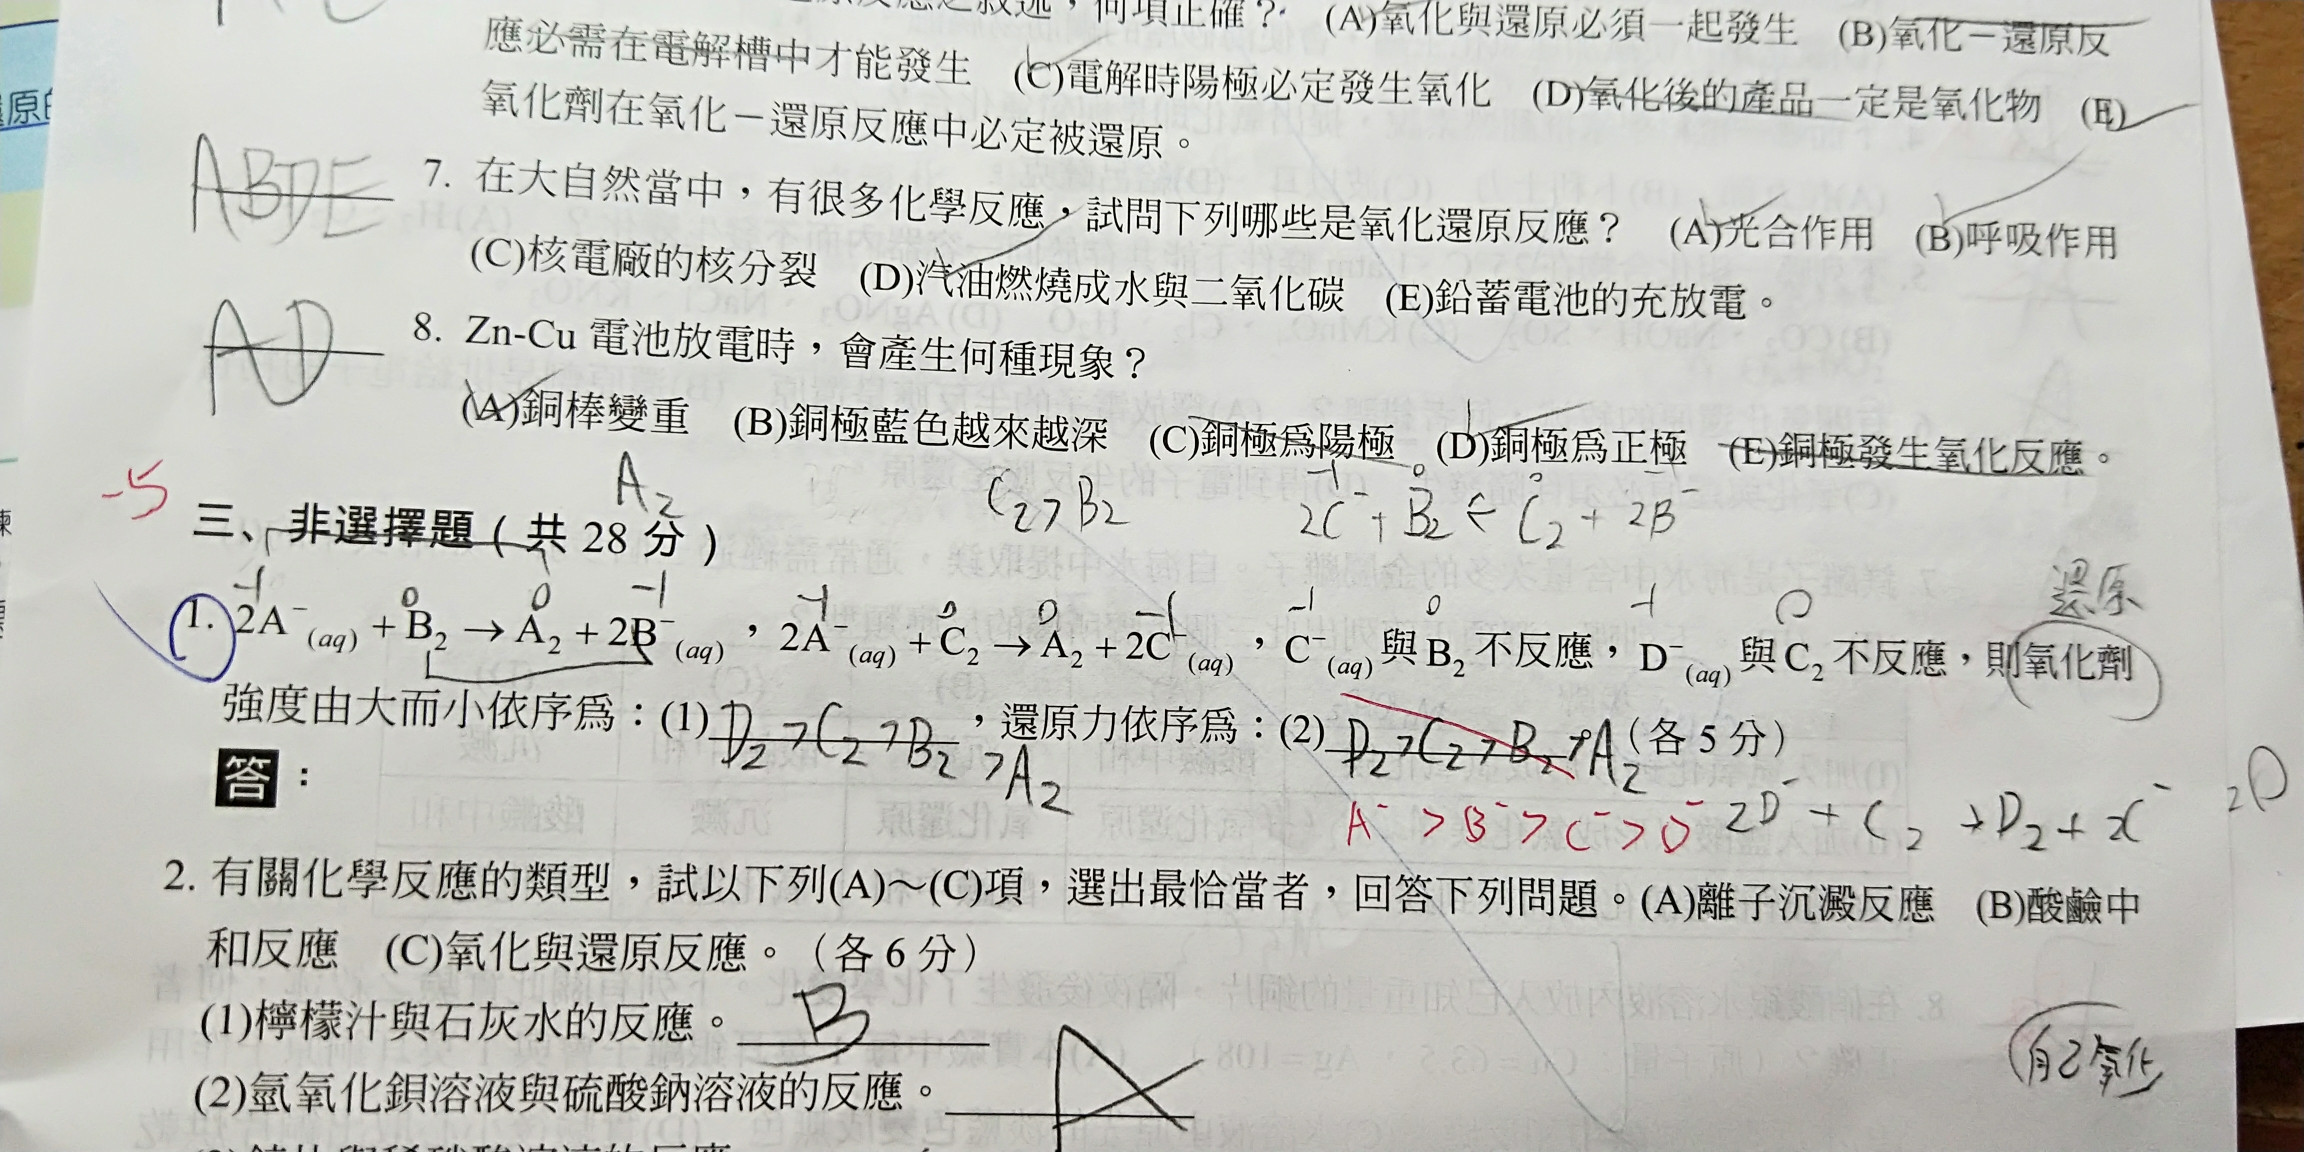 應必需在電解槽中才能發生　(C)電解時陽極必定發生氧化　(D)氧化後的產品一定是氧化物　(E)
何項正確？　(A)氧化與還原必須一起發生　(B)氧化－還原反
氧化劑在氧化－還原反應中必定被還原。
ABDE
7. 在大自然當中，有很多化學反應，試問下列哪些是氧化還原反應？　(A)光合作用　(B)呼吸作用
(C)核電廠的核分裂　(D)汽油燃燒成水與二氧化碳　(E)鉛蓄電池的充放電。
AD
8. Zn-Cu 電池放電時，會產生何種現象？
(A)銅棒變重　(B)銅極藍色越來越深　(C)銅極爲陽極　(D)銅極爲正極　(E)銅極發生氧化反應。
-5
A₂
C₂ > B₂
-1 0 0 -1
2C⁻ + B₂ ← C₂ + 2B⁻
三、非選擇題（共 28 分）
還原
-1 0 0 -1 -1 0 0 -1 -1 0 -1 0
1. 2A⁻(aq) + B₂ → A₂ + 2B⁻(aq)，2A⁻(aq) + C₂ → A₂ + 2C⁻(aq)，C⁻(aq)與 B₂ 不反應，D⁻(aq)與 C₂ 不反應，則氧化劑
強度由大而小依序爲：(1) D₂ > C₂ > B₂ > A₂，還原力依序爲：(2) D₂ > C₂ > B₂ > A₂（各 5 分）
答：
A⁻ > B⁻ > C⁻ > D⁻
2D⁻ + C₂ → D₂ + 2C⁻
2D
2. 有關化學反應的類型，試以下列(A)～(C)項，選出最恰當者，回答下列問題。(A)離子沉澱反應　(B)酸鹼中
和反應　(C)氧化與還原反應。（各 6 分）
(1)檸檬汁與石灰水的反應。 B
自己氧化
(2)氫氧化鋇溶液與硫酸鈉溶液的反應。 A